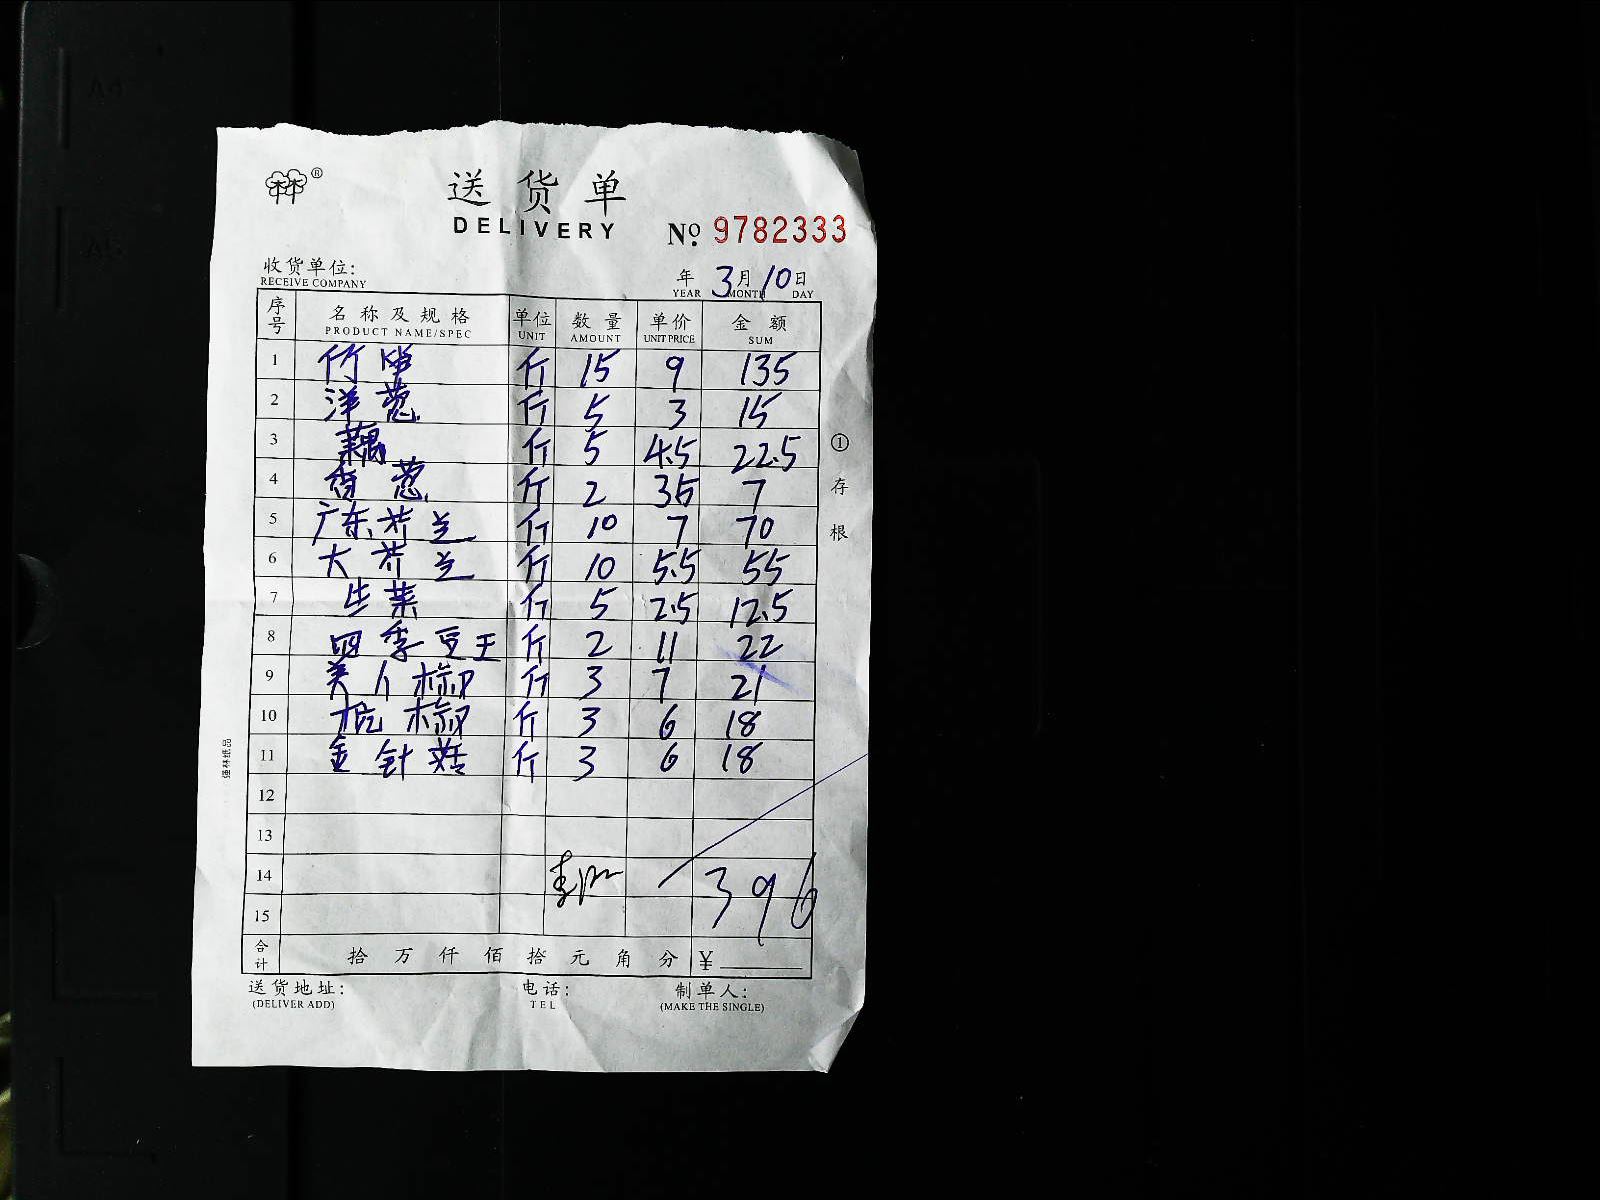 ®
送货单
DELIVERY
No. 9782333
收货单位:
RECEIVE COMPANY
年 3月10日
YEAR MONTH DAY
序号 名称及规格 单位 数量 单价 金额
PRODUCT NAME/SPEC UNIT AMOUNT UNIT PRICE SUM
1 竹笋 斤 15 9 135
2 洋葱 斤 5 3 15
3 藕 斤 5 4.5 22.5
4 香葱 斤 2 35 7
5 广东芥兰 斤 10 7 70
6 大芥兰 斤 10 5.5 55
7 生菜 斤 5 2.5 12.5
8 四季豆王 斤 2 11 22
9 美人椒 斤 3 7 21
10 杭椒 斤 3 6 18
11 金针菇 斤 3 6 18
12
13
14 396
15
合计 拾万仟佰拾元角分 ¥
①存根
强林纸品
送货地址: 电话: 制单人:
(DELIVER ADD) TEL (MAKE THE SINGLE)